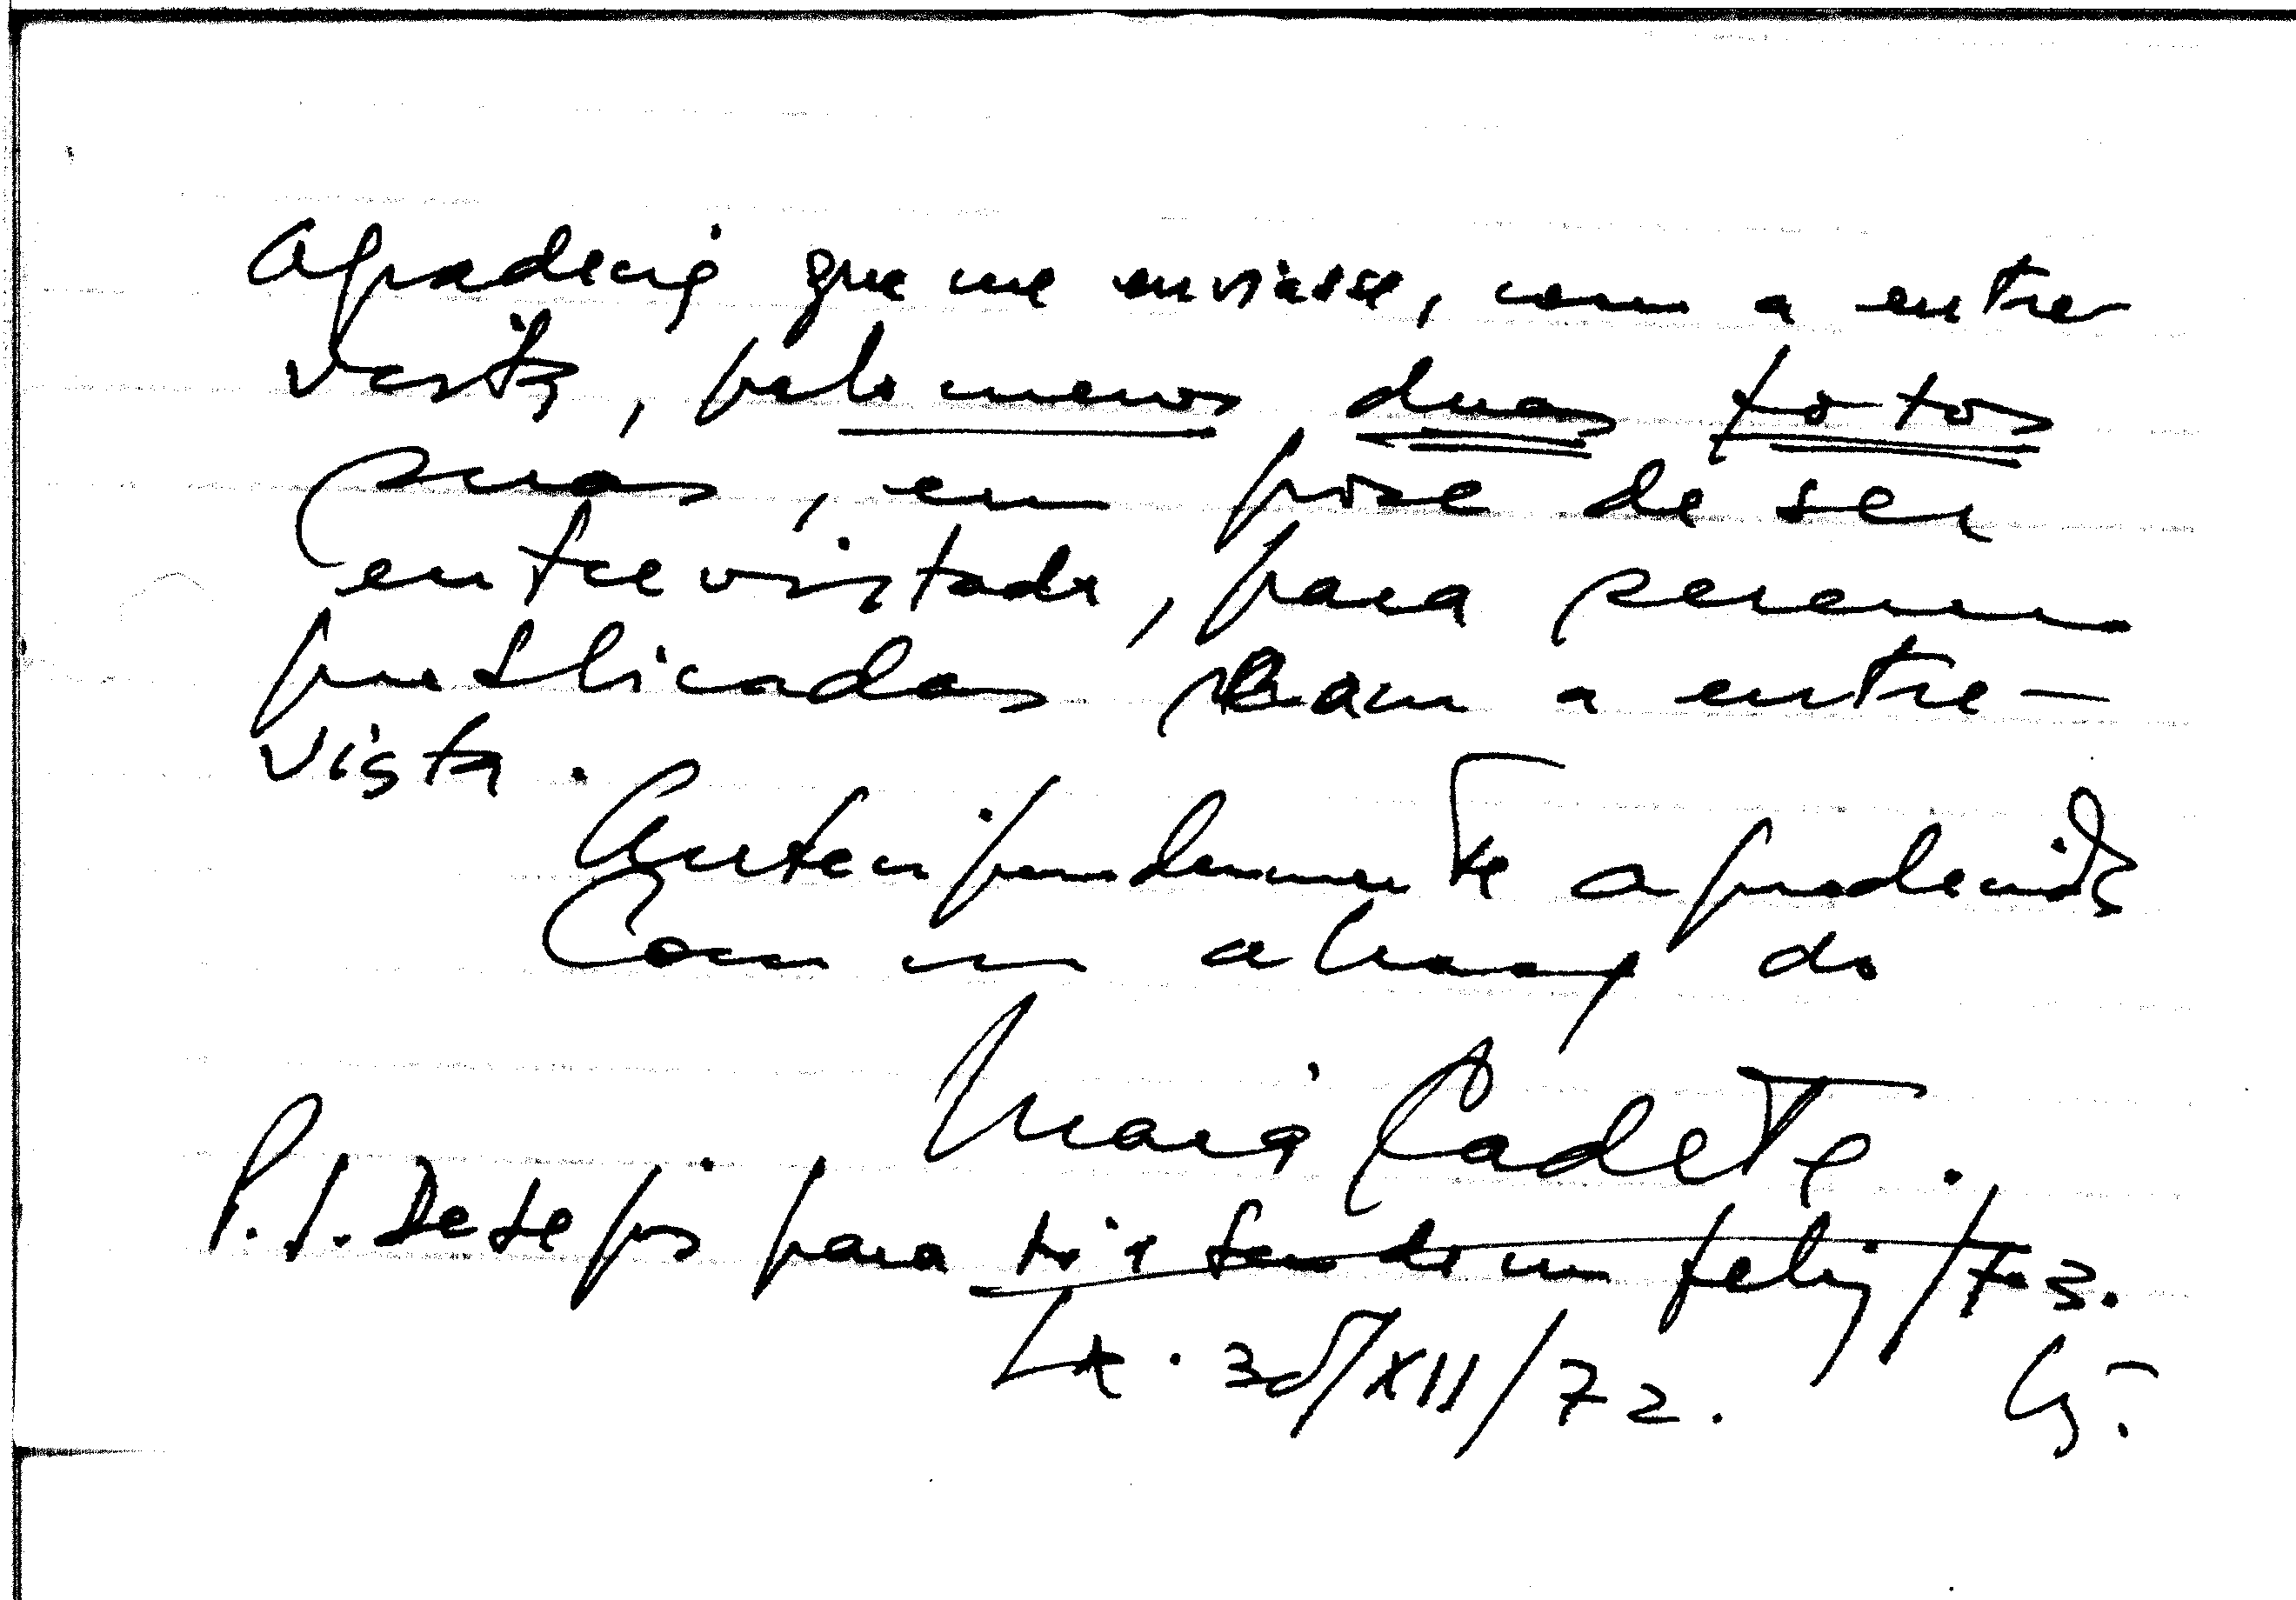 Agradecia que me enviasse, com a entre
vista, pelo menos duas fotos
suas, em pose de ser
entrevistado, para serem
publicadas com a entre-
vista.
Antecipadamente agradecido
Com um abraço do
Maia Cadete.
P.S. Desejos para ti e de um feliz /73.
Lx. 30/XII/72.